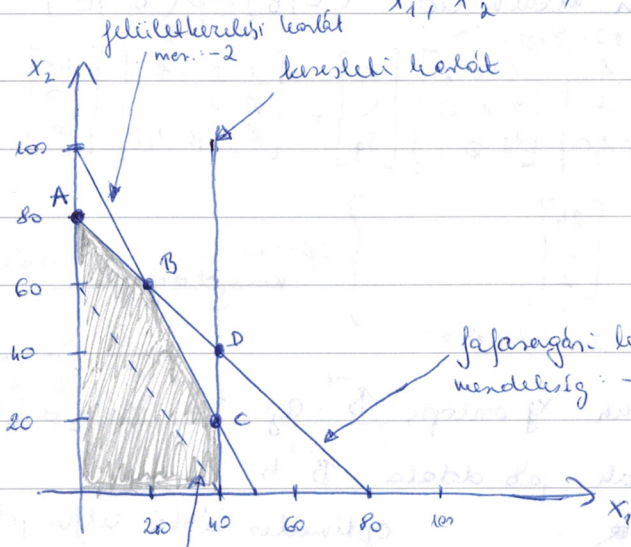 x₁, x₂
felületkezelési korlát
mer.: -2
keresleti korlát
x₂
100
A
80
B
60
D
40
fafaragási
meredekség: -
20
C
20
40
60
80
100
x₁